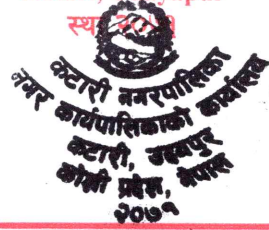 स्था २०७१
कटारी नगरपालिका
नगर कार्यपालिकाको कार्यालय
कटारी, उदयपुर
कोशी प्रदेश, नेपाल
२०७१